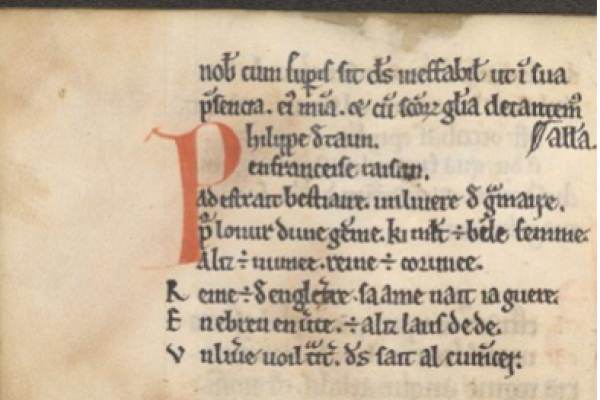 nob̄ cum sup̱is sit d̄s ineffabil̄ ut ī sua
p̄sencia. ei' mīa. &e cū scōꝝ gl̄ia decantem̄
all'a.
Philippe de taun.
en franceise raisun.
Ad estrait bestiaire. un livere de g̃maire.
p̱ lonur dune gēme. ki mlt ÷ bele femme.
Aliz ÷ numee. reine ÷ corunee.
Reine ÷ de engletꝛe. sa ame nait ia guere.
En ebreu en ūite. ÷ aliz laus de de.
Un liūe voil t̃it̃. d̄s sait al cum̄cer.